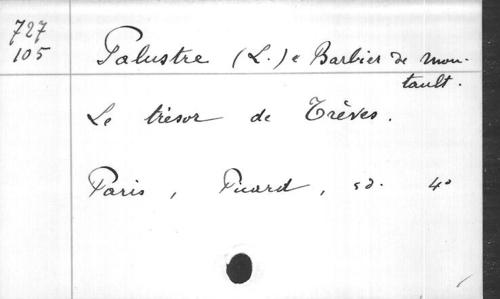 727
105
Palustre (L.) e Barbier de Mon-
tault.
Le trésor de Trèves.
Paris, Picard, sd. 4º